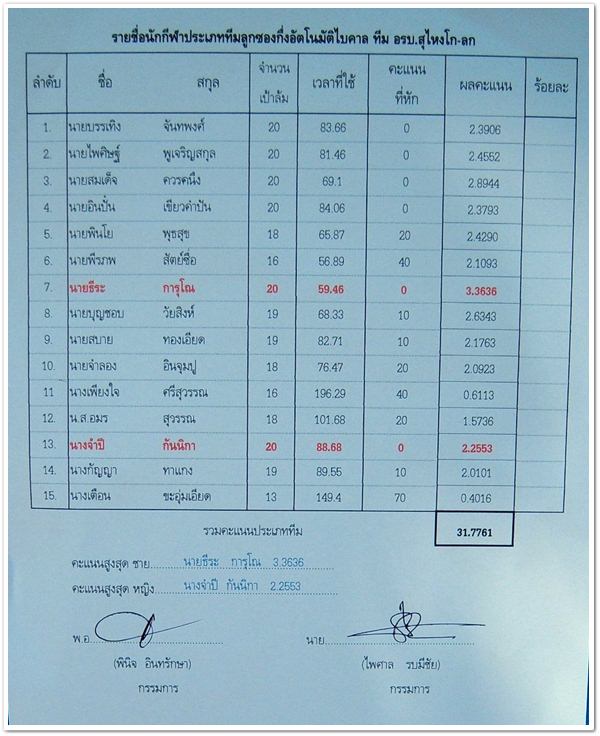 รายชื่อนักกีฬาประเภททีมลูกซองกึ่งอัตโนมัติไบคาล ทีม อรบ.สุไหงโก-ลก
ลำดับ ชื่อ สกุล จำนวนเป้าล้ม เวลาที่ใช้ คะแนนที่หัก ผลคะแนน ร้อยละ
1. นายบรรเทิง จันทพงศ์ 20 83.66 0 2.3906
2. นายไพศิษฐ์ พูเจริญสกุล 20 81.46 0 2.4552
3. นายสมเด็จ ควรคนึง 20 69.1 0 2.8944
4. นายอินปั่น เขียวคำปัน 20 84.06 0 2.3793
5. นายพินโย พุธสุข 18 65.87 20 2.4290
6. นายพีรภพ สัตย์ซื่อ 16 56.89 40 2.1093
7. นายธีระ การุโณ 20 59.46 0 3.3636
8. นายบุญชอบ วัยสิงห์ 19 68.33 10 2.6343
9. นายสบาย ทองเอียด 19 82.71 10 2.1763
10. นายจำลอง อินจุมปู 18 76.47 20 2.0923
11 นางเพียงใจ ศรีสุวรรณ 16 196.29 40 0.6113
12. น.ส.อมร สุวรรณ 18 101.68 20 1.5736
13. นางจำปี กันนิกา 20 88.68 0 2.2553
14. นางกัญญา ทาแกง 19 89.55 10 2.0101
15. นางเตือน ชะอุ่มเอียด 13 149.4 70 0.4016
รวมคะแนนประเภททีม 31.7761
คะแนนสูงสุด ชาย นายธีระ การุโณ 3.3636
คะแนนสูงสุด หญิง นางจำปี กันนิกา 2.2553
พ.อ. นาย
(พินิจ อินทรักษา) (ไพศาล รบมีชัย)
กรรมการ กรรมการ